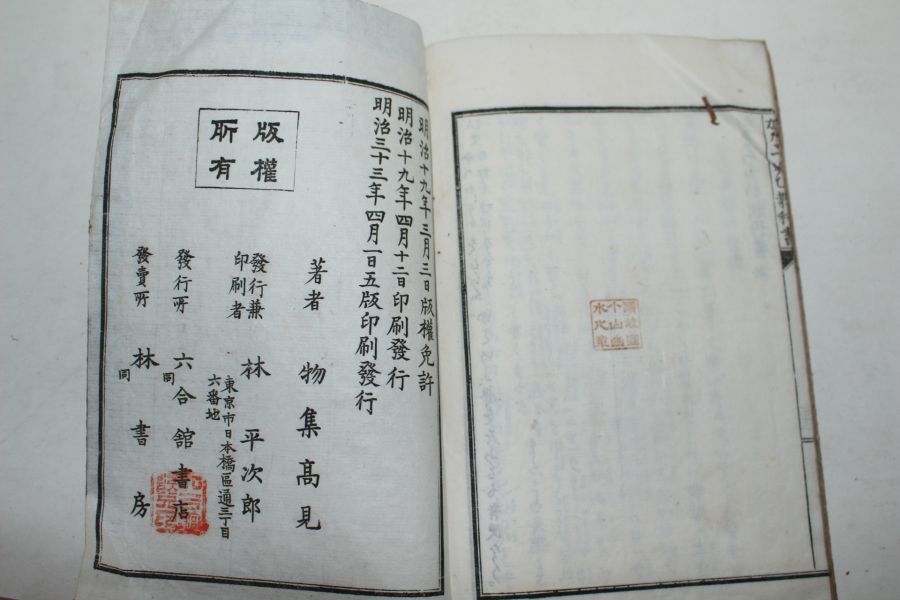 明治十九年三月三日版權免許
明治十九年四月十二日印刷發行
明治三十三年四月一日五版印刷發行
版權
所有
著者 物集高見
發行兼
印刷者 林 平次郎
東京市日本橋區通三丁目
六番地
發行所 六合館書店
同
發賣所 林書房
同